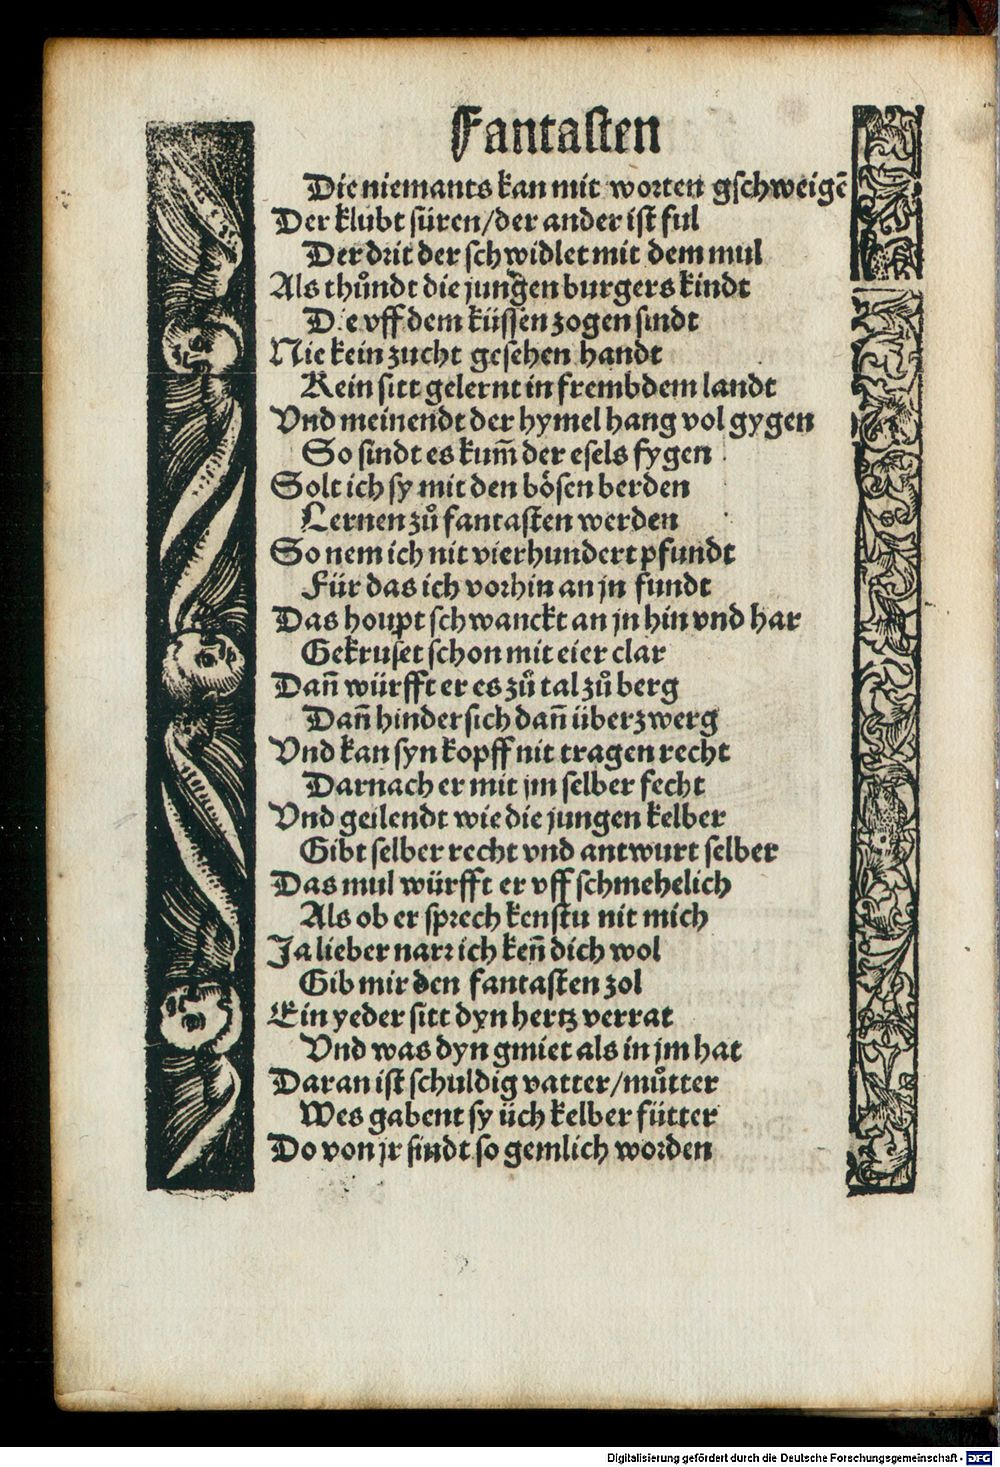 Fantasten
Die niemants kan mit worten gschweigē
Der klubt süren/der ander ist ful
Der drit der schwidlet mit dem mul
Als thůndt die jungen burgers kindt
Die vff dem küssen zogen sindt
Nie kein zucht gesehen handt
Kein sitt gelernt in frembdem landt
Vnd meinendt der hymel hang vol gygen
So sindt es kum̄ der esels fygen
Solt ich sy mit den bösen berden
Lernen zů fantasten werden
So nem ich nit vierhundert pfundt
Für das ich vorhin an jn fundt
Das houpt schwanckt an jn hin vnd har
Gekruset schon mit eier clar
Dañ würfft er es zů tal zů berg
Dañ hindersich dañ überzwerg
Vnd kan syn kopff nit tragen recht
Darnach er mit jm selber fecht
Vnd geilendt wie die jungen kelber
Gibt selber recht vnd antwurt selber
Das mul würfft er vff schmehelich
Als ob er sprech kenstu nit mich
Ja lieber narr ich keñ dich wol
Gib mir den fantasten zol
Ein yeder sitt dyn hertz verrat
Vnd was dyn gmiet als in jm hat
Daran ist schuldig vatter/můtter
Wes gabent sy üch kelber fůtter
Do von jr sindt so gemlich worden
Digitalisierung gefördert durch die Deutsche Forschungsgemeinschaft - DFG